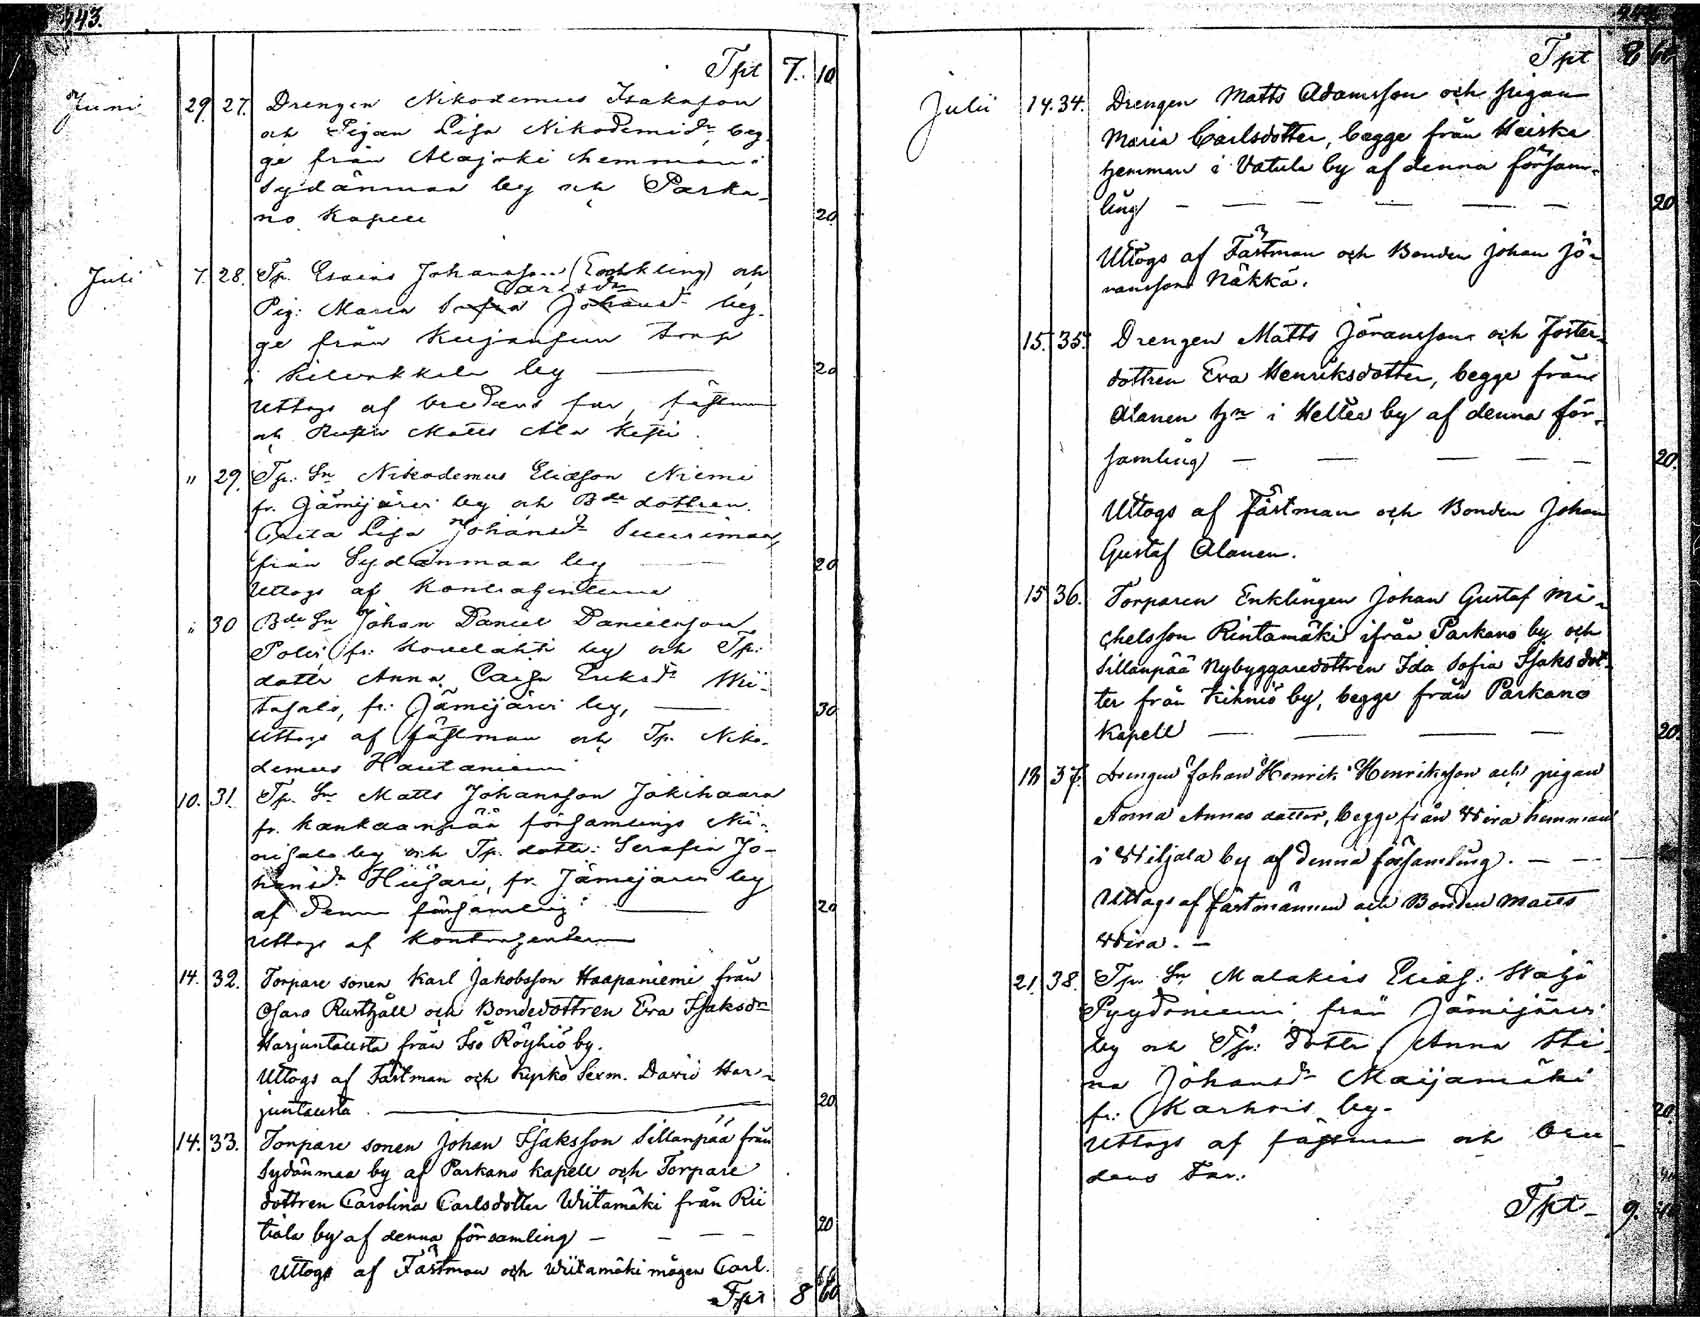 443.
Tpt 7. 10
Juni 29. 27. Drengen Nikodemus Isaksson
och Pigan Lisa Nikodemid:r beg-
ge från Alajoki hemman i
Sydänmaa by och Parka-
no Kapell 20
Juli 7. 28. Tp. Esaias Johansson (Enkling) och
Carlsdr
Pig: Maria Johansd:r beg-
ge från torp
i by 20
Uttogs af brudens far, fästman
och Matts Ala
" 29. Tp. Sn Nikodemus Eliasson Niemi
fr. Jämijärvi by och Bde dottren
Greta Lisa Johansd:r
från Sydänmaa by 20
Uttogs af Kontrahenterne
" 30 Bde Sn Johan Daniel Danielsson
fr: by och Tp:
dottr Anna Caisa Eriksd:r Wii-
tasalo, fr: Jämijärvi by, 30
Uttogs af fästman och Tp. Niko-
demus Hautaniemi
10. 31. Tp. Sn Matts Johansson Jokihaara
fr. Kankaanpää församlings Ni-
by och Tp. dottr: Serafia Jo-
hansd:r Hiisari, fr. Jämijärvi by
af denna församling 20
Uttogs af Kontrahenterne
14. 32. Torpare sonen Karl Jakobsson Haapaniemi från
Osara Rusthåll och Bondedottren Eva Isaksdr
Harjuntausta från Iso Röyhiö by.
Uttogs af Fästman och Kyrko Sexm. David Har-
juntausta 20
14. 33. Torpare sonen Johan Isaksson Sillanpää från
Sydänmaa by af Parkano Kapell och Torpare
dottren Carolina Carlsdotter Wiitamäki från Rii
tiala by af denna församling 20
Uttogs af Fästman och Wiitamäki mågen Carl.
Tpt 8 60
Tpt 8 60
Julii 14. 34. Drengen Matts Adamsson och pigan
Maria Carlsdotter, begge från Heiska
hemman i Vatula by af denna försam-
ling 20
Uttogs af Fästman och Bonden Johan Jö-
ransson Näkkä.
15. 35. Drengen Matts Jöransson och Foster-
dottren Eva Henriksdotter, begge från
Alanen Hn i Hellea by af denna för-
samling 20.
Uttogs af fästman och Bonden Johan
Gustaf Alanen.
15 36. Torparen Enklingen Johan Gustaf Mi-
chelsson Rintamäki ifrån Parkano by och
Sillanpää Nybyggaredottren Ida Sofia Isaksdot-
ter från Kihniö by, begge från Parkano
Kapell 20.
18 37. Drengen Johan Henrik Henriksson och pigan
Anna Annas dotter, begge från Wira hemman
i Wiljala by af denna församling.
Uttogs af fästmannen och Bonden Matts
Wira.
21. 38. Tp. Sn Malakias Elias:
Pyydöniemi från Jämijärvi
by och Tp: Dottr Anna Sti-
na Johansd:r Maijamäki
fr: Karhois by. 20.
Uttogs af fästman och bru-
dens Far.
Tpt 9.